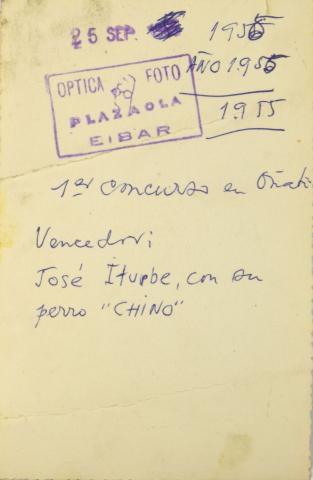 25 SEP. 1955
AÑO 1.955
OPTICA FOTO
PLAZAOLA
EIBAR
1.955
1er Concurso en Oñati
Vencedor:
José Iturbe, con su
perro "CHINO"